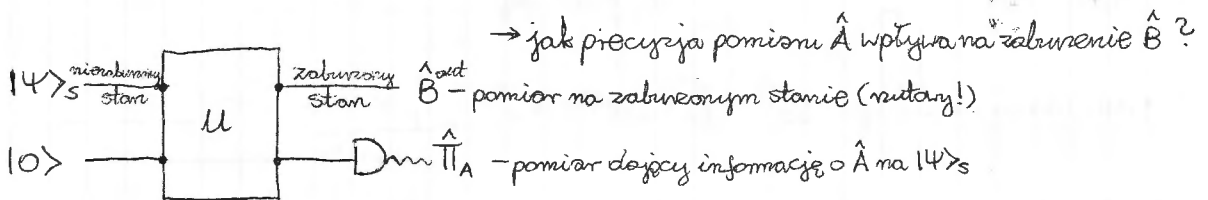 → jak precyzja pomiaru Â wpływa na zaburzenie B̂ ?
|ψ⟩_S niezaburzony stan
U
zaburzony stan
B̂^out – pomiar na zaburzonym stanie (rzutowy!)
|0⟩
Π̂_A – pomiar dający informację o Â na |ψ⟩_S